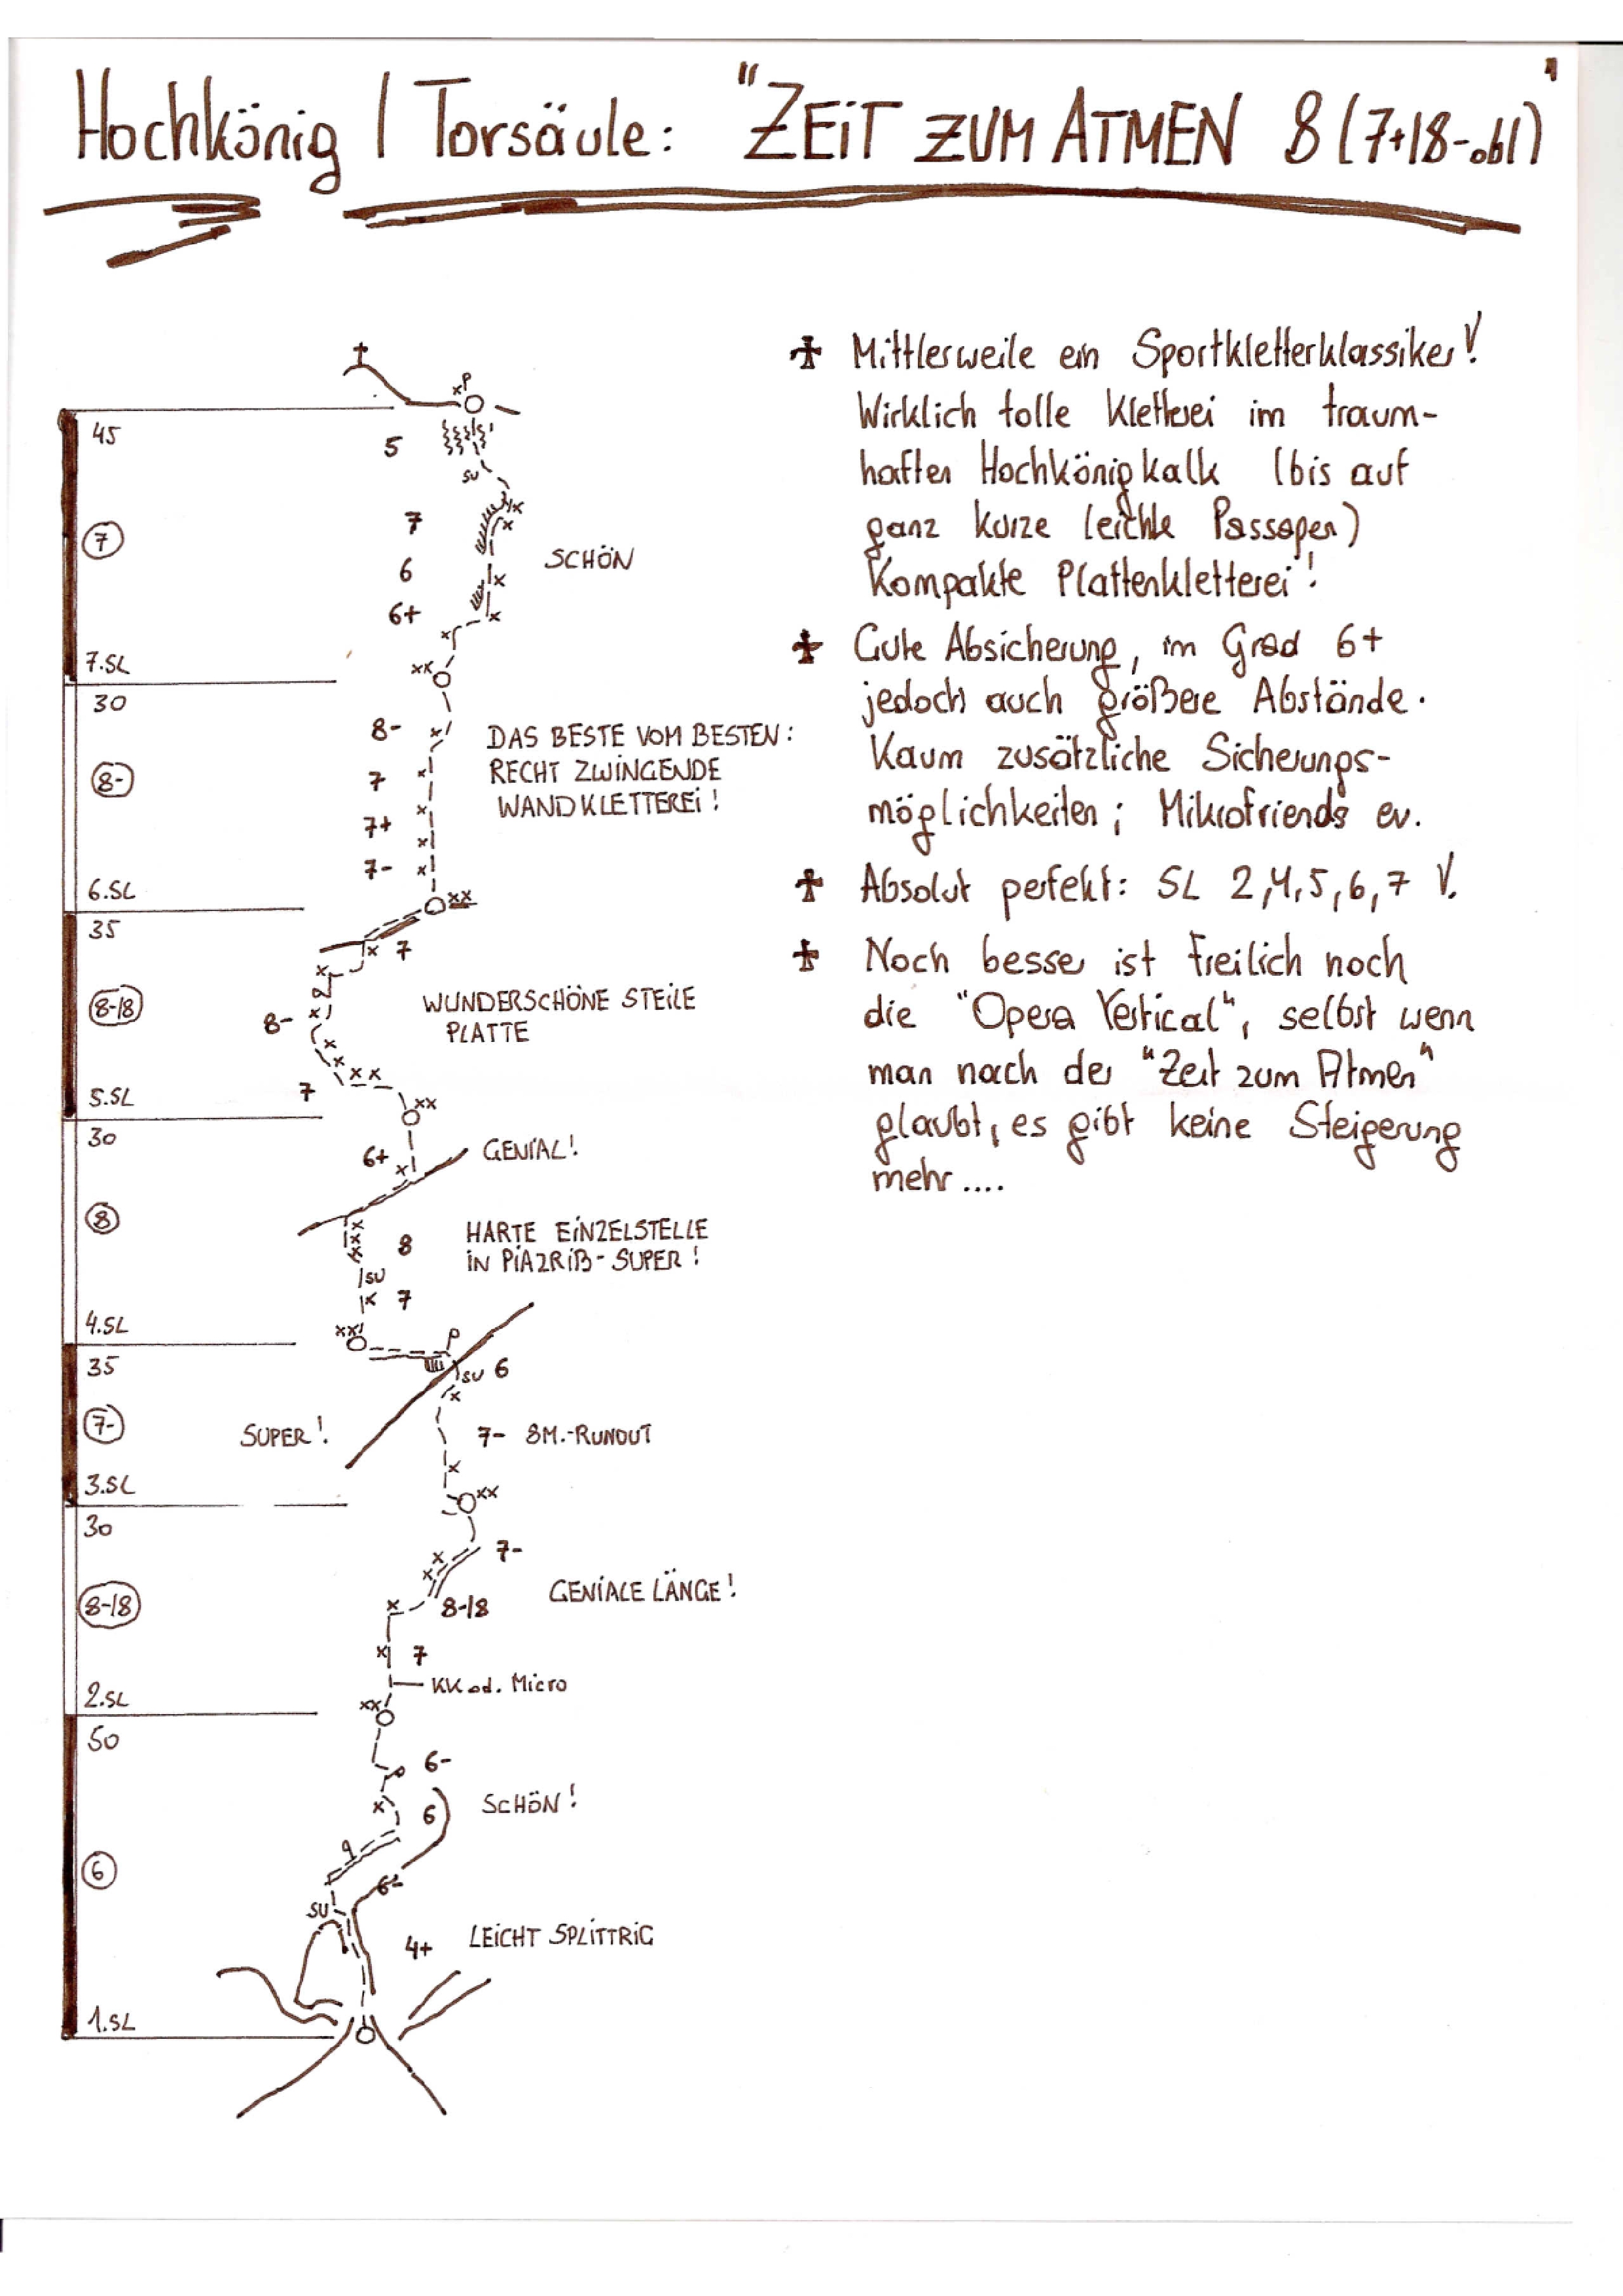 Hochkönig / Torsäule: "ZEiT ZUM ATMEN 8 (7+/8-obl)"
P
x
45
5
SU
7
7
SCHÖN
6
6+
7.SL
xx
30
8-
DAS BESTE VOM BESTEN:
RECHT ZWINGENDE
WANDKLETTEREI!
7
8-
7+
7-
6.SL
xx
35
7
8-/8
WUNDERSCHÖNE STEILE
PLATTE
8-
7
5.SL
xx
30
6+
GENIAL!
8
8
HARTE EINZELSTELLE
IN PIAZRIß - SUPER!
SU
7
4.SL
xx
P
35
SU 6
7-
SUPER!
7- 8M.-RUNOUT
3.SL
xx
30
7-
8-/8
8-/8
GENIALE LÄNGE!
7
KK od. Micro
2.SL
xx
50
6-
6
SCHÖN!
6
6-
SU
4+
LEICHT SPLITTRIG
1.SL
Mittlerweile ein Sportkletterklassiker!
Wirklich tolle Kletterei im traum-
haften Hochkönigkalk (bis auf
ganz kurze leichte Passagen)
Kompakte Plattenkletterei!
Gute Absicherung, im Grad 6+
jedoch auch größere Abstände.
Kaum zusätzliche Sicherungs-
möglichkeiten; Mikrofriends ev.
Absolut perfekt: SL 2,4,5,6,7 !
Noch besser ist freilich noch
die "Opera Vertical", selbst wenn
man nach der "Zeit zum Atmen"
glaubt, es gibt keine Steigerung
mehr....